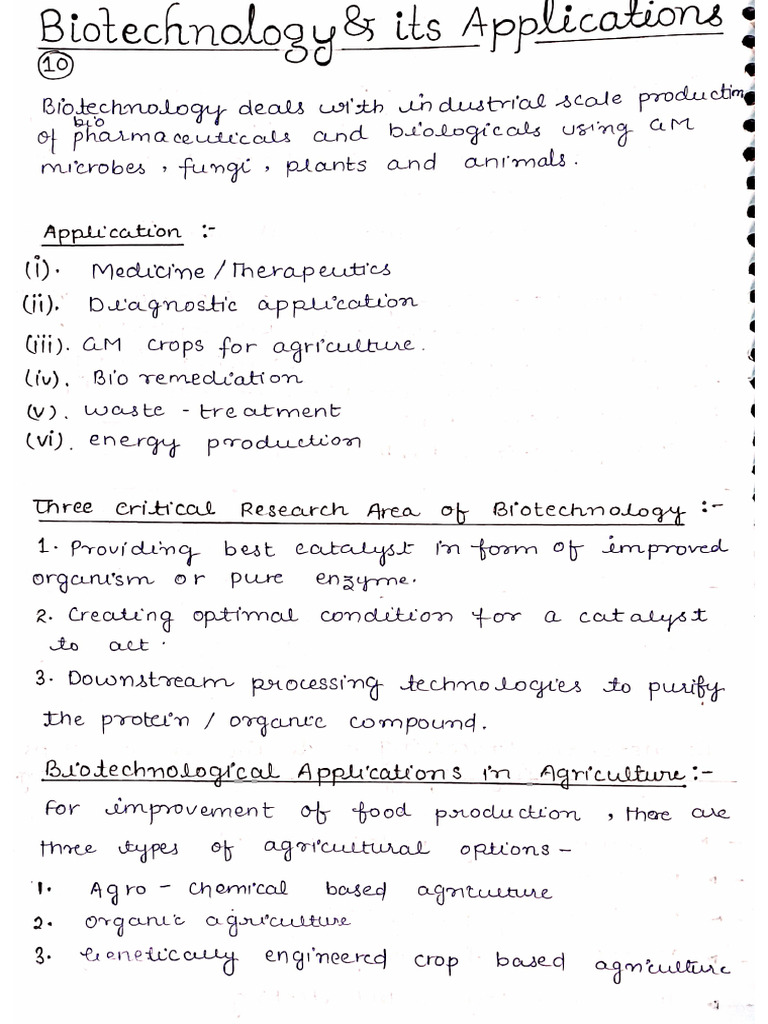 Biotechnology & its Applications
10
Biotechnology deals with industrial scale production
of biopharmaceuticals and biologicals using GM
microbes, fungi, plants and animals.
Application :-
(i). Medicine / Therapeutics
(ii). Diagnostic application
(iii). GM crops for agriculture.
(iv). Bio remediation
(v). waste - treatment
(vi). energy production
Three Critical Research Area of Biotechnology :-
1. Providing best catalyst in form of improved
organism or pure enzyme.
2. Creating optimal condition for a catalyst
to act.
3. Downstream processing technologies to purify
the protein / organic compound.
Biotechnological Applications in Agriculture :-
For improvement of food production, there are
three types of agricultural options -
1. Agro - chemical based agriculture
2. organic agriculture
3. Genetically engineered crop based agriculture